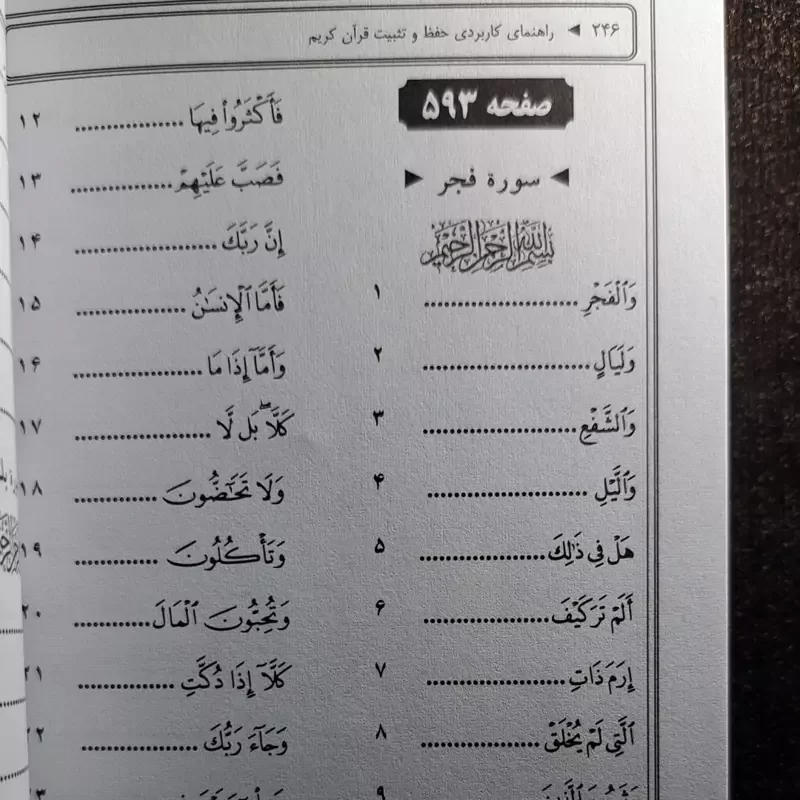 ۲۴۶ ◄ راهنمای کاربردی حفظ و تثبیت قرآن کریم
صفحه ۵۹۳
◄ سورة فجر ►
بِسْمِ اللَّهِ الرَّحْمَٰنِ الرَّحِيمِ
وَٱلْفَجْرِ.................... ۱
وَلَيَالٍ...................... ۲
وَٱلشَّفْعِ.................... ۳
وَٱلَّيْلِ..................... ۴
هَلْ فِى ذَٰلِكَ................ ۵
أَلَمْ تَرَ كَيْفَ................ ۶
إِرَمَ ذَاتِ.................. ۷
ٱلَّتِى لَمْ يُخْلَقْ............... ۸
وَثَمُودَ ٱلَّذِينَ ۹
فَأَكْثَرُوا۟ فِيهَا............... ۱۲
فَصَبَّ عَلَيْهِمْ.............. ۱۳
إِنَّ رَبَّكَ................... ۱۴
فَأَمَّا ٱلْإِنسَٰنُ............... ۱۵
وَأَمَّآ إِذَا مَا................. ۱۶
كَلَّا ۖ بَل لَّا.................. ۱۷
وَلَا تَحَٰٓضُّونَ............ ۱۸
وَتَأْكُلُونَ............ ۱۹
وَتُحِبُّونَ ٱلْمَالَ............ ۲۰
كَلَّآ إِذَا دُكَّتِ............. ۲۱
وَجَآءَ رَبُّكَ................ ۲۲